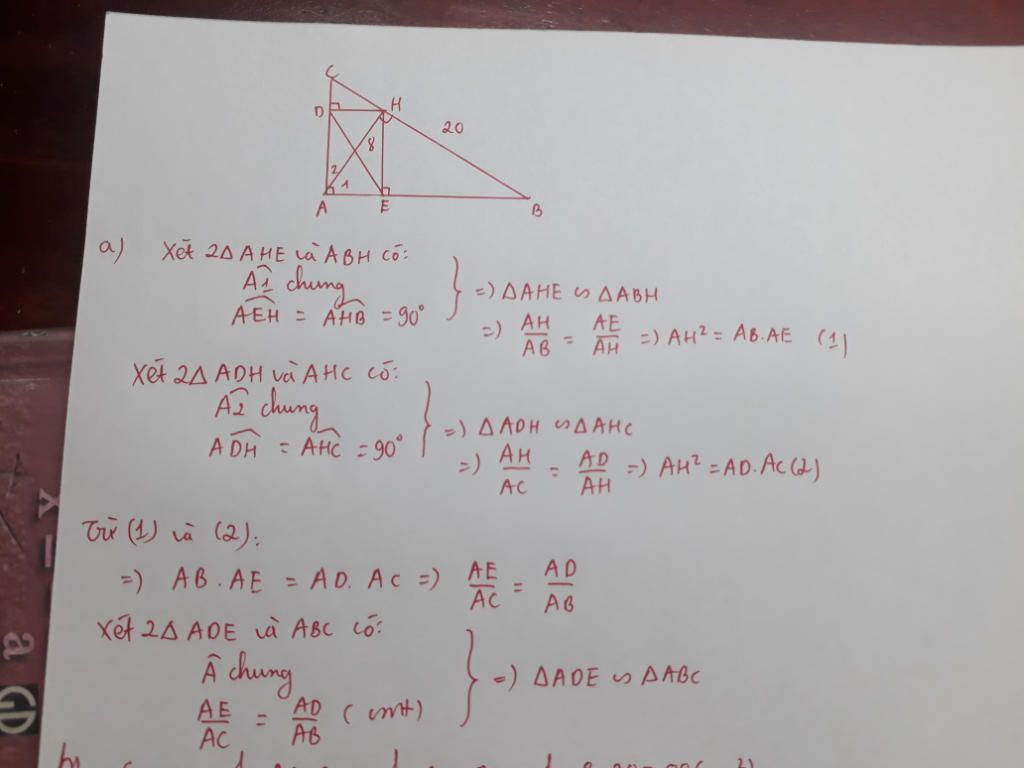 C
D
H
20
8
2
1
A
E
B
a) Xét 2Δ AHE và ABH có:
Â1 chung
AÊH = AĤB = 90°
=) ΔAHE ∽ ΔABH
=) AH/AB = AE/AH =) AH² = AB.AE (1)
Xét 2Δ ADH và AHC có:
Â2 chung
AD̂H = AĤC = 90°
=) ΔADH ∽ ΔAHC
=) AH/AC = AD/AH =) AH² = AD.AC (2)
Từ (1) và (2):
=) AB.AE = AD.AC =) AE/AC = AD/AB
Xét 2Δ ADE và ABC có:
Â chung
AE/AC = AD/AB (cmt)
=) ΔADE ∽ ΔABC
b)
X
a
GD